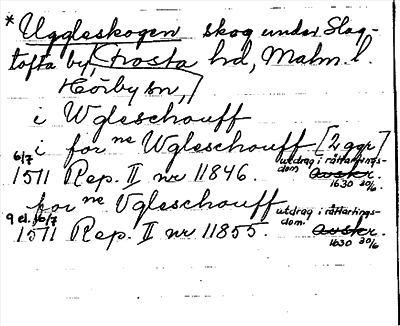 * Uggleskogen skog under Slag-
tofta by, Frosta hd, Malm. l.
Hörby sn,
i Wgleschouff
i for ne Wgleschouff [2 ggr]
6/7 1511 Rep. II nr 11846. utdrag i råttartings-
dom avskr. 1630 20/6
for ne Vgleschouff
9 el. 16/7 1511 Rep. II nr 11855. utdrag i råttartings-
dom avskr. 1630 20/6